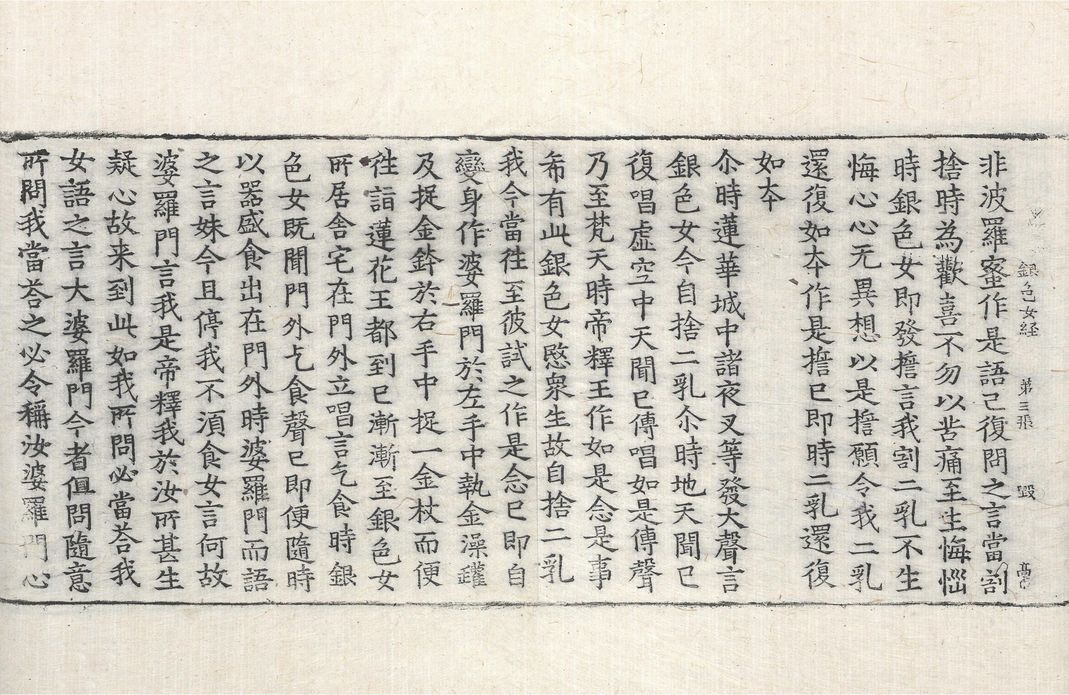 銀色女経　第三張　毀　亭
非波羅蜜作是語已復問之言當割
捨時為歡喜不勿以苦痛至生悔惱
時銀色女即發擔言我割二乳不生
悔心心无異想以是擔願令我二乳
還復如夲作是擔巳即時二乳還復
如夲
尒時蓮華城中諸夜叉等發大聲言
銀色女今自捨二乳尒時地天聞巳
復唱虛空中天聞巳傳唱如是傳聲
乃至梵天時帝釋王作如是念是事
希有此銀色女愍衆生故自捨二乳
我今當往至彼試之作是念巳即自
變身作婆羅門於左手中執金澡罐
及捉金鉢於右手中捉一金杖而便
往詣蓮花王都到巳漸漸至銀色女
所居舍宅在門外立唱言乞食時銀
色女既聞門外乞食聲巳即便隨時
以器盛食出在門外時婆羅門而語
之言妹今且停我不湏食女言何故
婆羅門言我是帝釋我於汝所甚生
疑心故来到此如我所問必當荅我
女語之言大婆羅門今者但問隨意
所問我當荅之必令稱汝婆羅門心